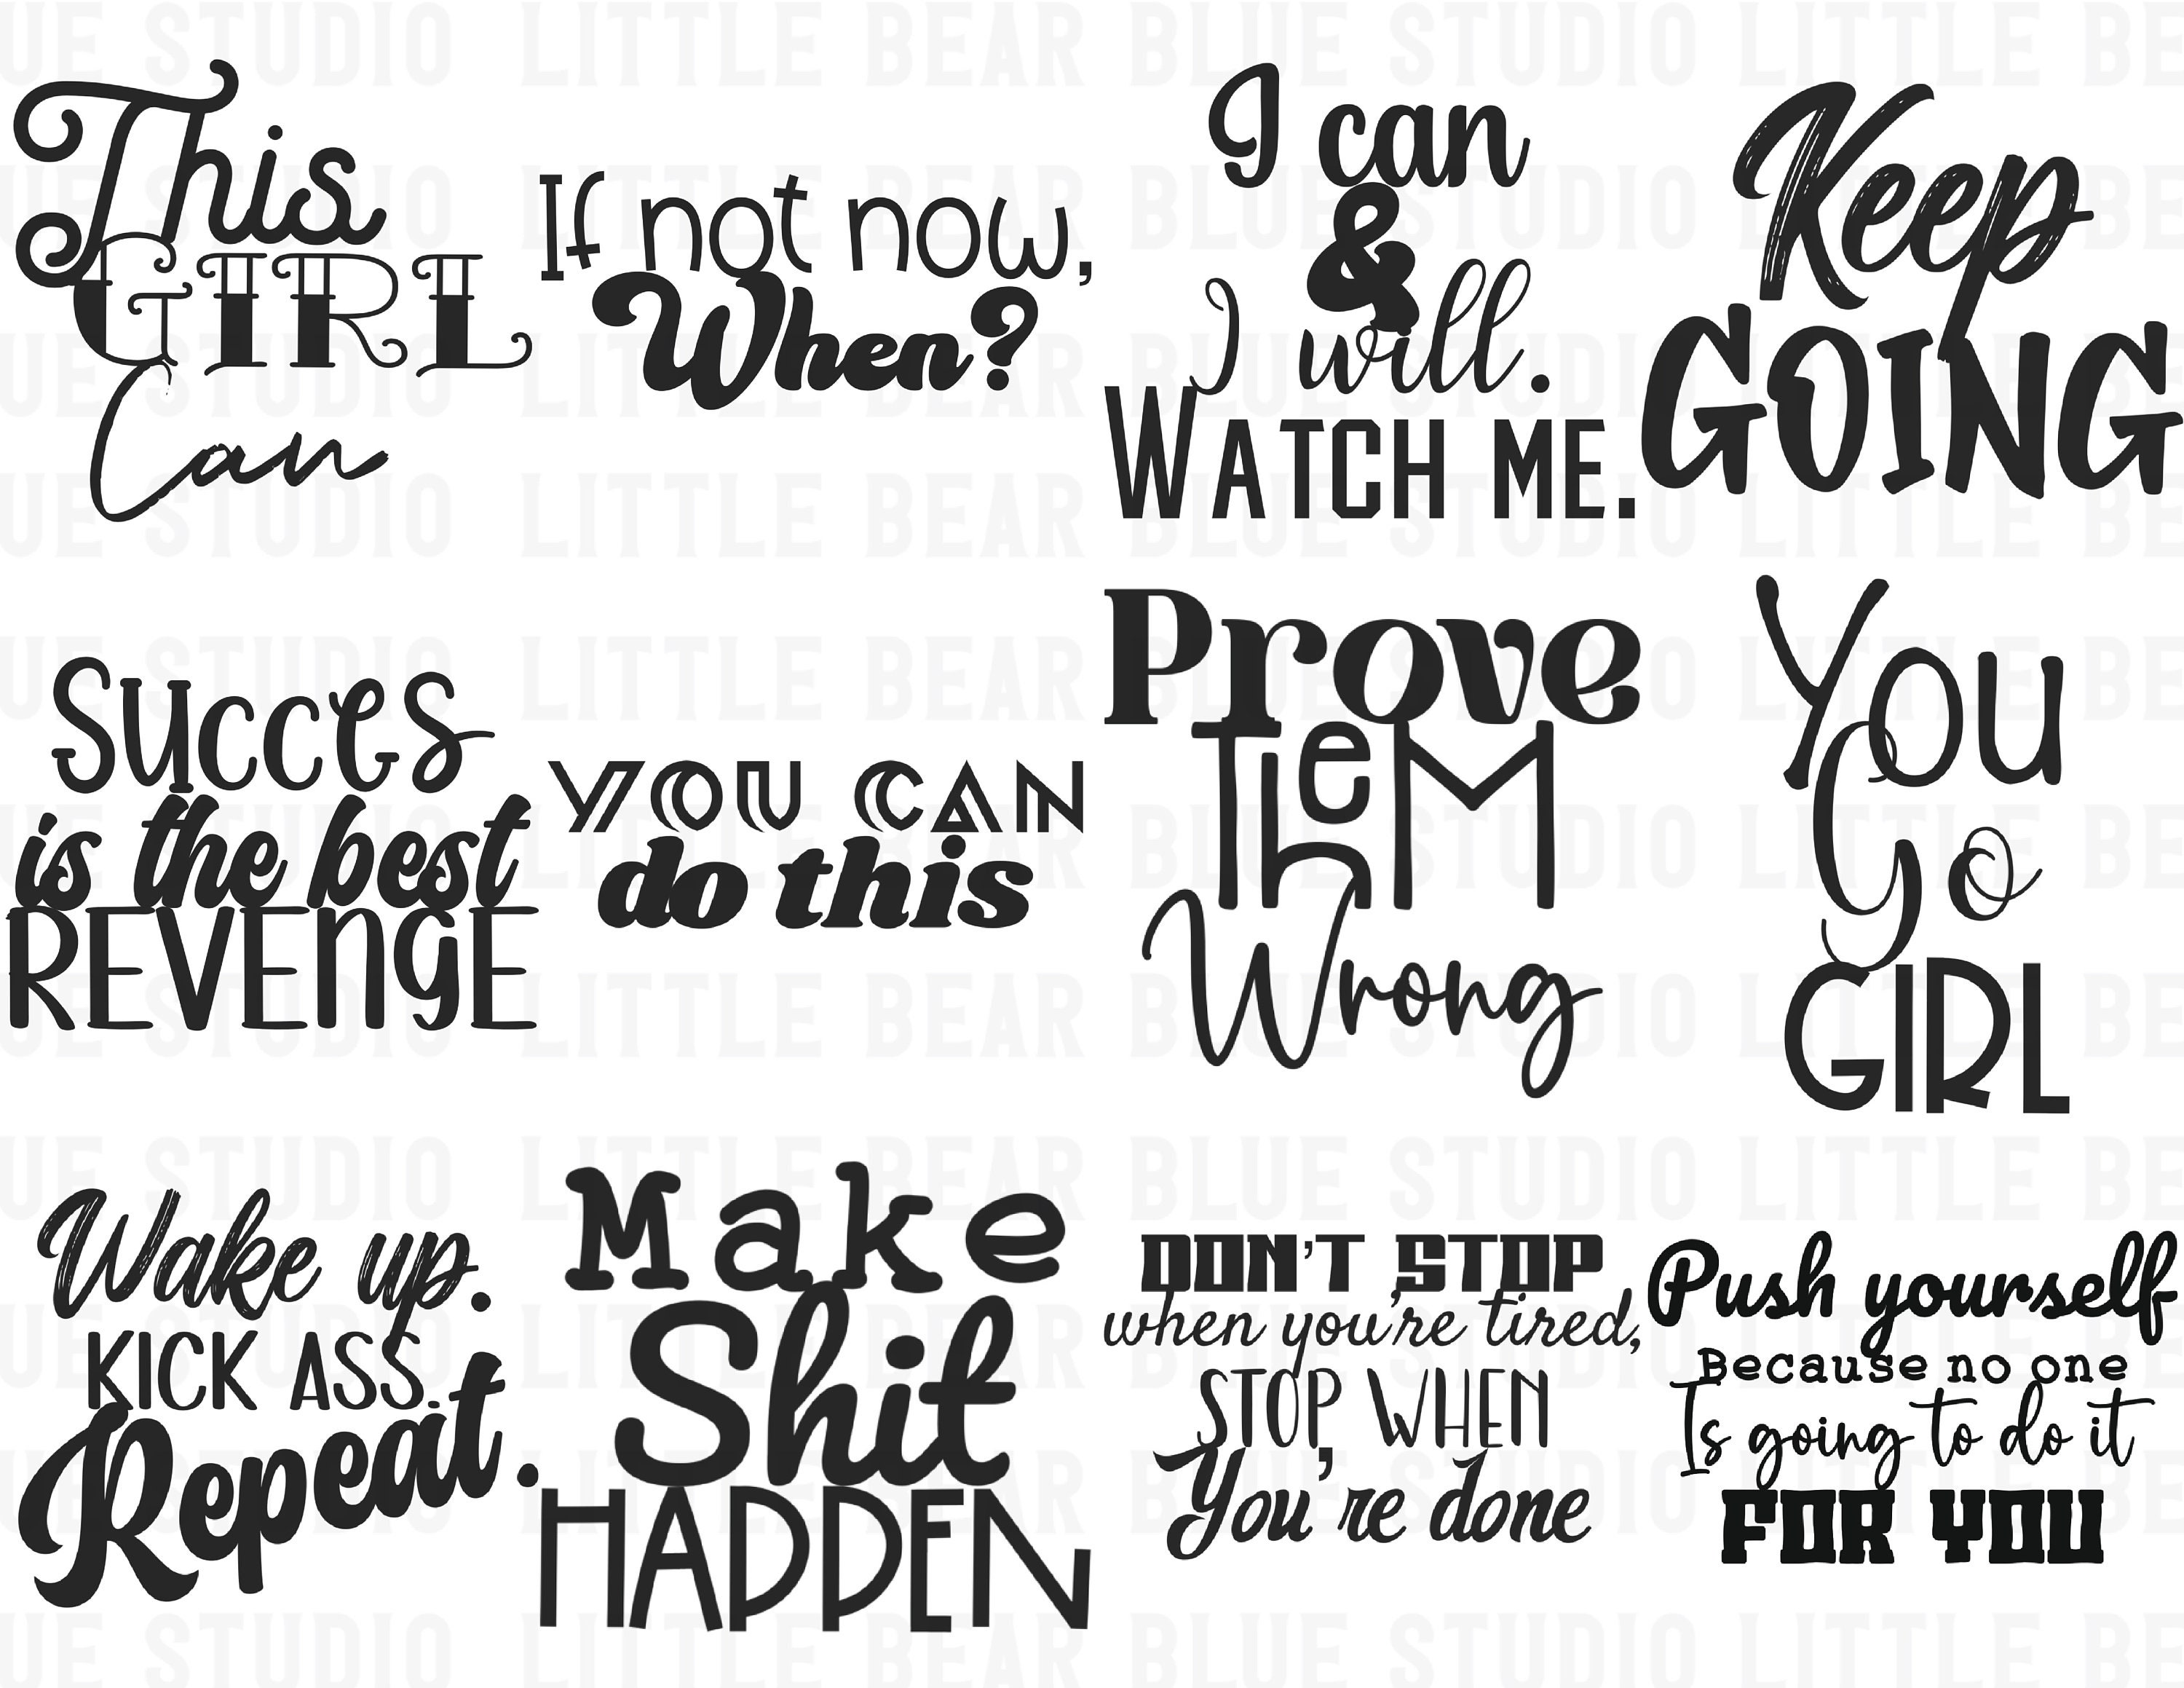 This
GIRL
Can
If not now,
When?
I can
&
I will.
WATCH ME.
Keep
GOING
Succes
is the best
REVEngE
YOU CAN
do this
Prove
THeM
Wrong
You
Go
GIRL
Wake up.
KICK ASS.
Repeat.
Make
Shit
HAPPEN
DON'T STOP
when you're tired,
STOP, WHEN
You're done
Push yourself
Because no one
Is going to do it
FOR YOU
BLUE STUDIO LITTLE BEAR BLUE STUDIO LITTLE BEAR